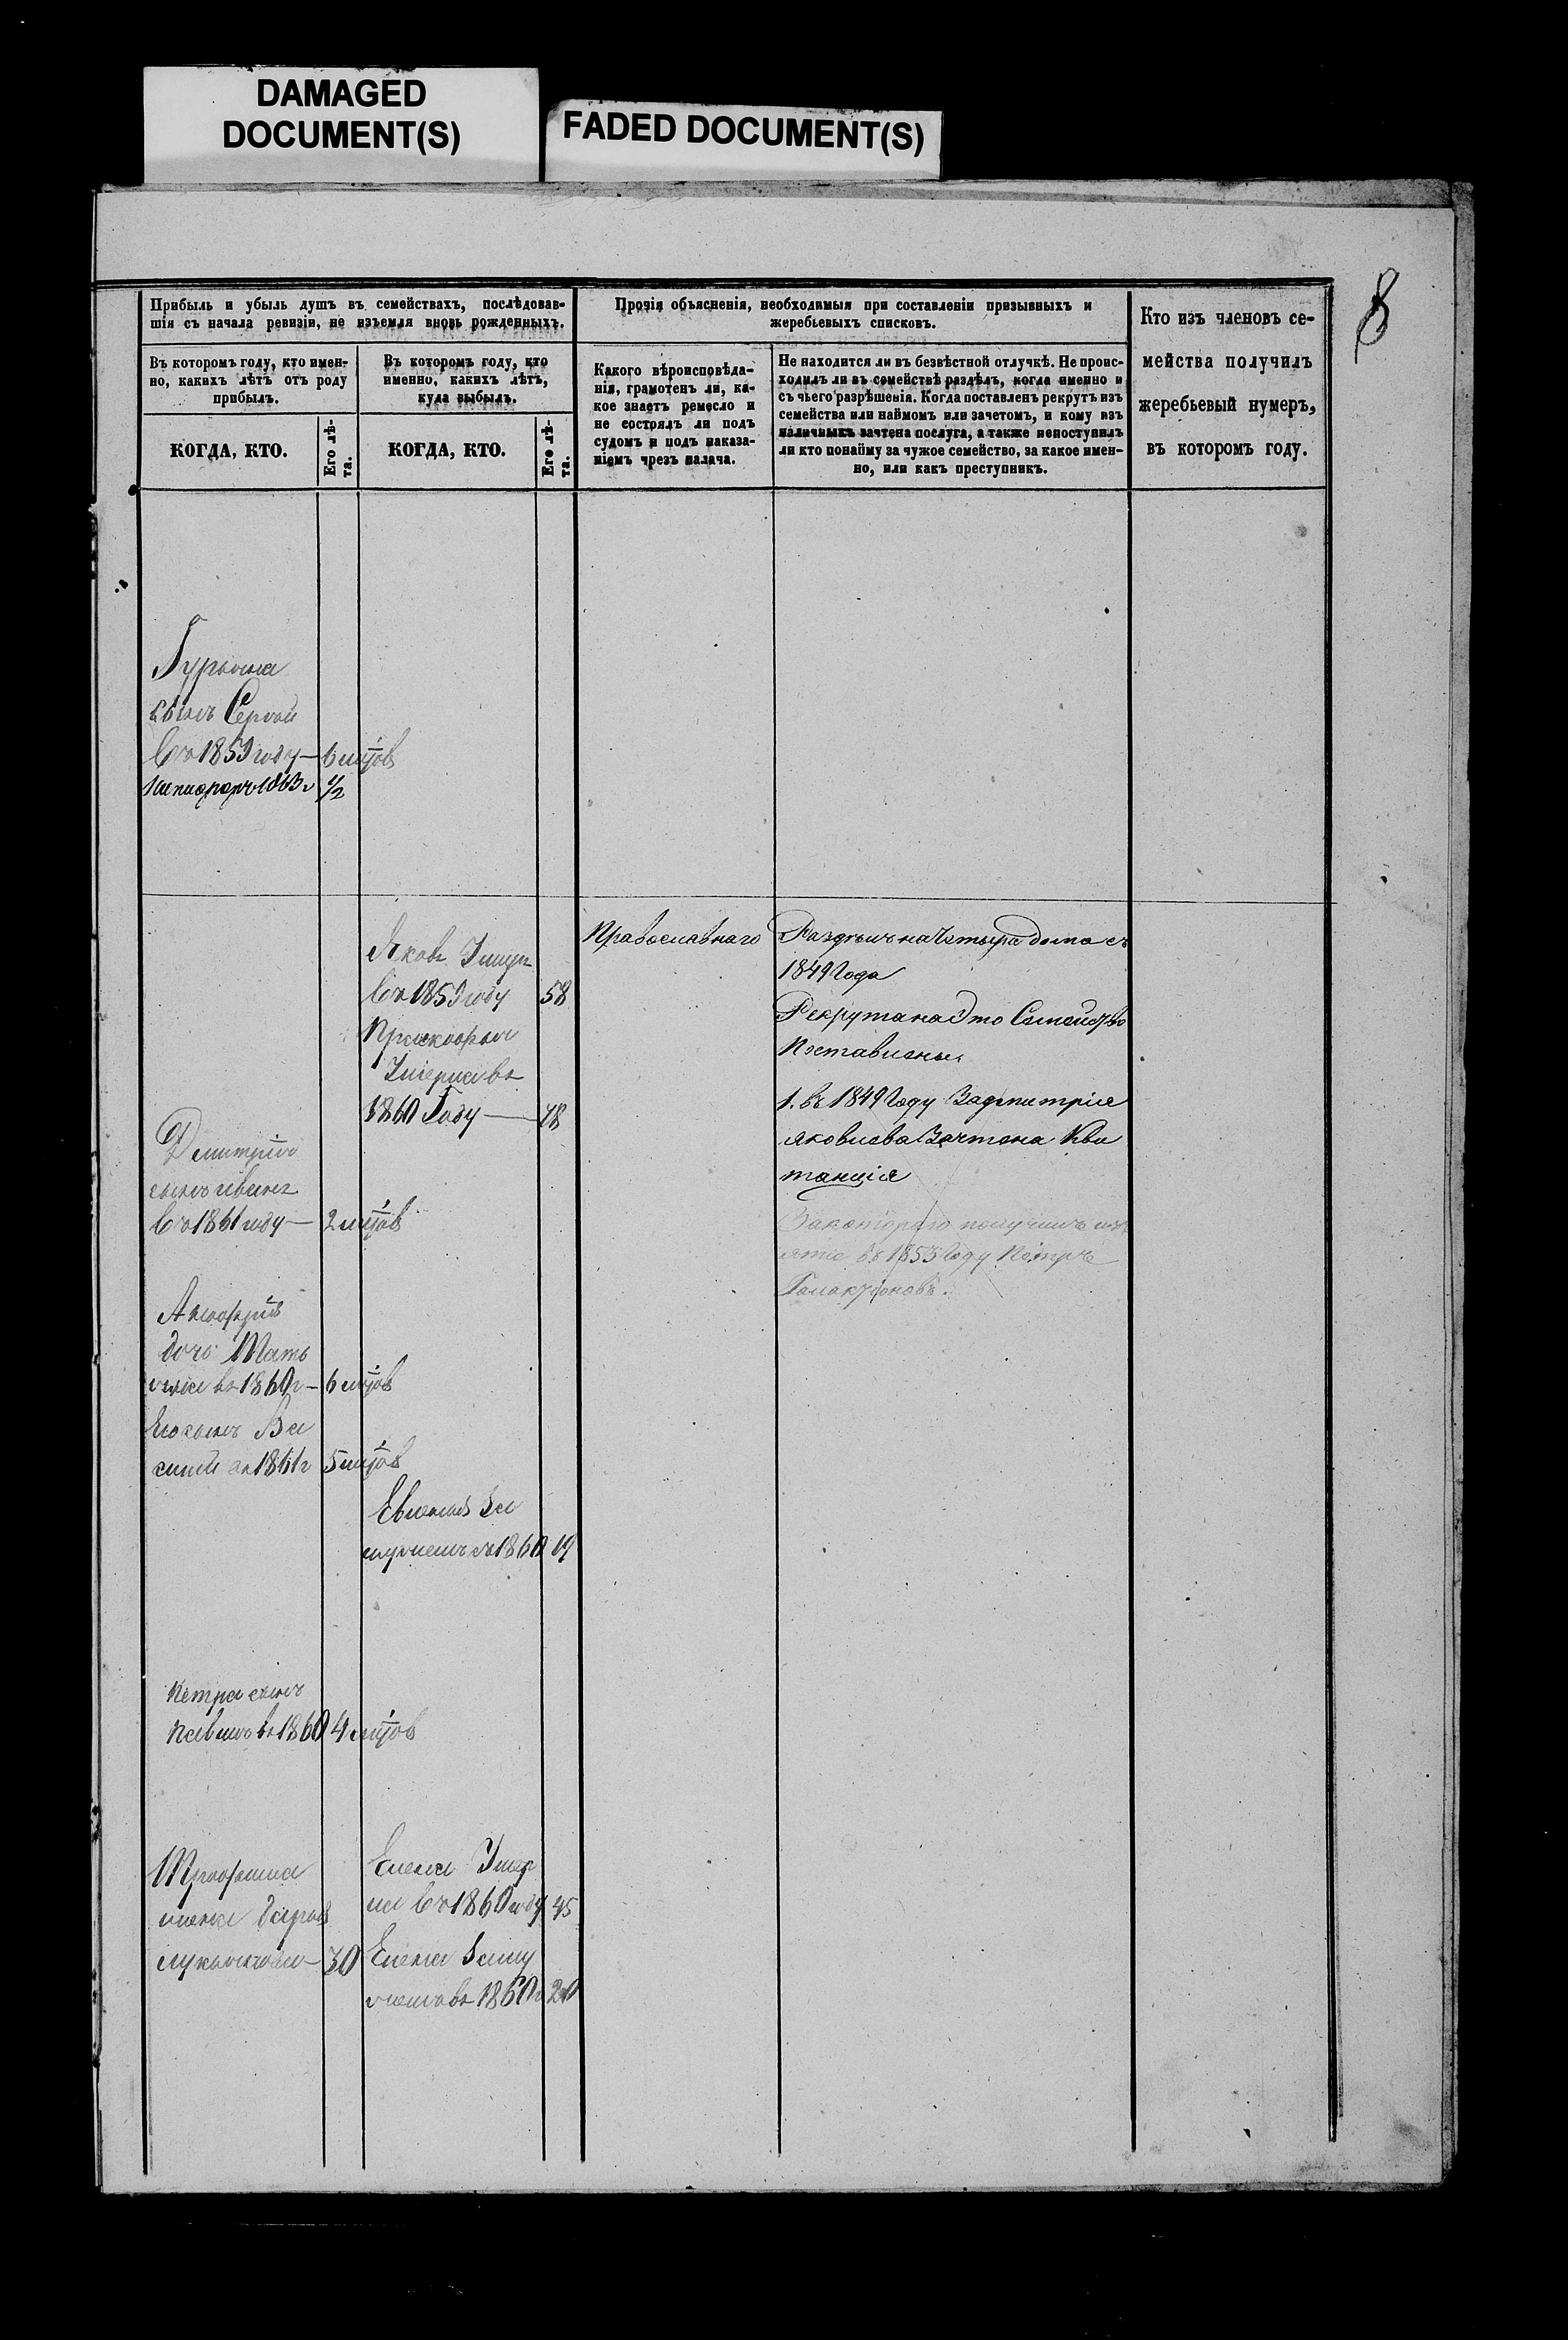 DAMAGED
DOCUMENT(S)
FADED DOCUMENT(S)
8
Прибыль и убыль душъ въ семействахъ, послѣдовав-
шія съ начала ревизіи, не изъемля вновь рожденныхъ.
Въ которомъ году, кто имен-
но, какихъ лѣтъ отъ роду
прибылъ.
КОГДА, КТО.
Его лѣ-
та.
Въ которомъ году, кто
именно, какихъ лѣтъ,
куда выбылъ.
КОГДА, КТО.
Его лѣ-
та.
Прочія объясненія, необходимыя при составленіи призывныхъ и
жеребьевыхъ списковъ.
Какого вѣроисповѣда-
нія, грамотенъ ли, ка-
кое знаетъ ремесло и
не состоялъ ли подъ
судомъ и подъ наказа-
ніемъ чрезъ палача.
Не находится ли въ безвѣстной отлучкѣ. Не проис-
ходилъ ли въ семействѣ раздѣлъ, когда именно и
съ чьего разрѣшенія. Когда поставленъ рекрутъ изъ
семейства или наймомъ или зачетомъ, и кому изъ
наличныхъ зачтена послуга, а также непоступилъ
ли кто понайму за чужое семейство, за какое имен-
но, или какъ преступникъ.
Кто изъ членовъ се-
мейства получилъ
жеребьевый нумеръ,
въ которомъ году.
Гурьяна
сынъ
въ 1859 году — 6
1863 г 1/2
Яковъ Умеръ
въ 1859 году 58
Умерла въ
1860 Году —
Православнаго
Раздѣлъ на Четыре дома съ
1849 Года
Рекрута на Это Семейство
Поставлены
1. въ 1849 Году За дмитрія
яковлева Зачтена Кви
танція
За котораго получилъ
въ 1853 Году Петръ
Галактіоновъ.
Дмитрія
сынъ иванъ
въ 1861 году — 2
дочь
въ 1860 г — 6
Его сынъ Ва
силій въ 1861 г 5
1860 19
Петра сынъ
Павелъ въ 1860 4
Трофима
жена Дарья
30
Елена Умер
ла въ 1860 году 45
Елена Заму
жемъ въ 1860 г 20